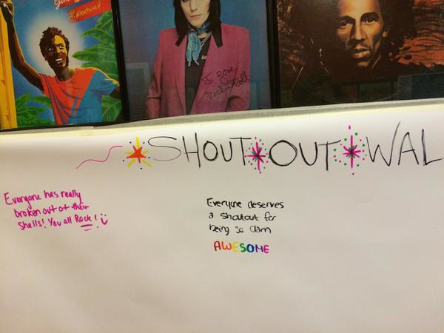 SHOUT OUT WAL
Everyone has really
broken out of their
shells! You all Rock!
Everyone deserves
a shoutout for
being so damn
AWESOME